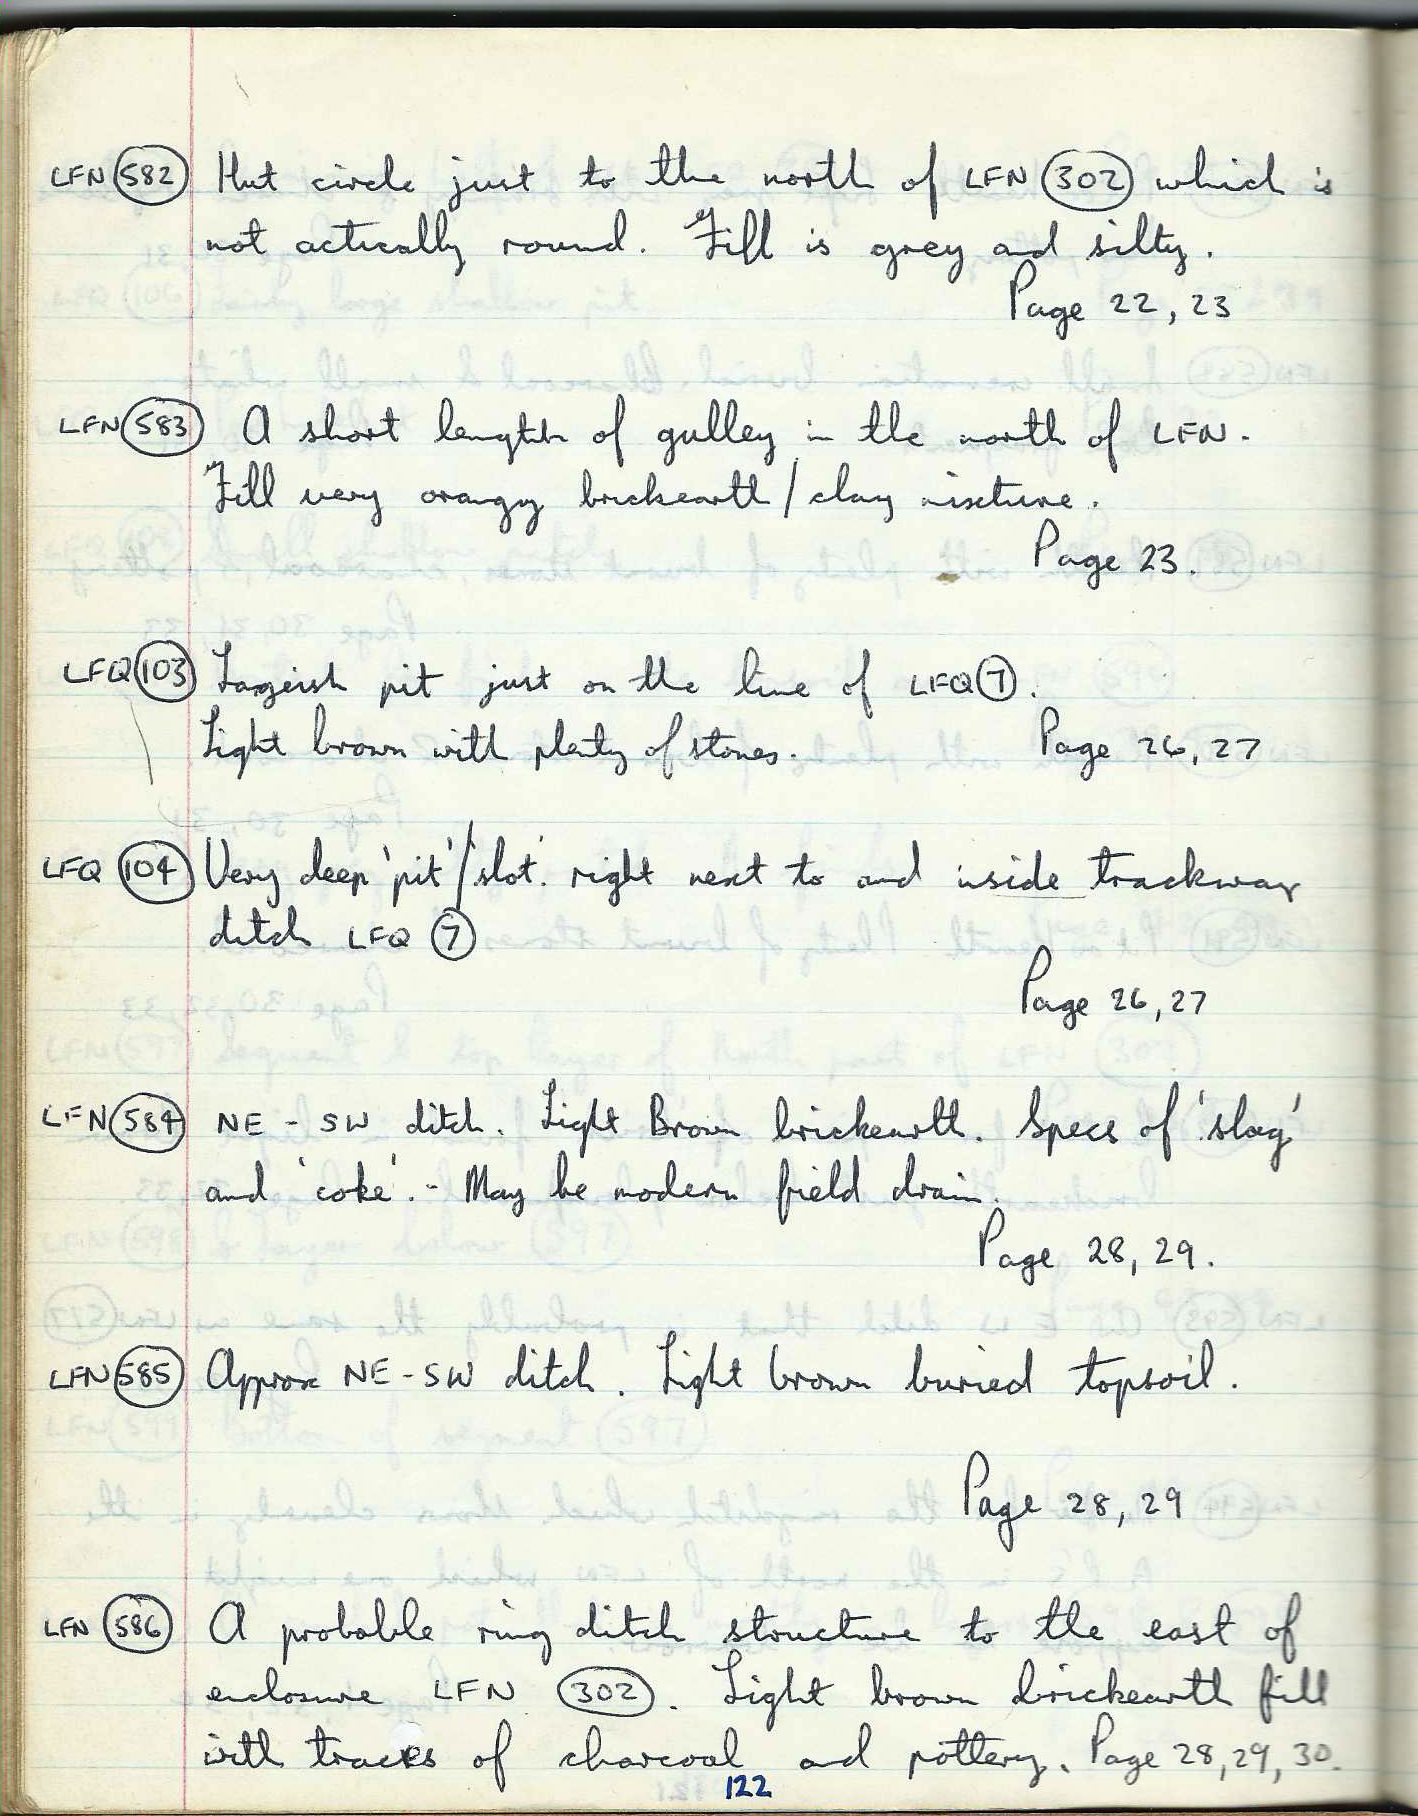 LFN 582 Hut circle just to the north of LFN 302 which is
not actually round. Fill is grey and silty.
Page 22, 23
LFN 583 A short length of gulley in the north of LFN.
Fill very orangy brickearth / clay mixture.
Page 23.
LFQ 103 Largeish pit just on the line of LFQ 7.
Light brown with plenty of stones. Page 26, 27
LFQ 104 Very deep 'pit' / 'slot'. right next to and inside trackway
ditch LFQ 7
Page 26, 27
LFN 584 NE - SW ditch. Light Brown brickearth. Specs of 'slag'
and 'coke'. - May be modern field drain.
Page 28, 29.
LFN 585 Approx NE - SW ditch. Light brown buried topsoil.
Page 28, 29
LFN 586 A probable ring ditch structure to the east of
enclosure LFN 302. Light brown brickearth fill
with traces of charcoal and pottery. Page 28, 29, 30.
122